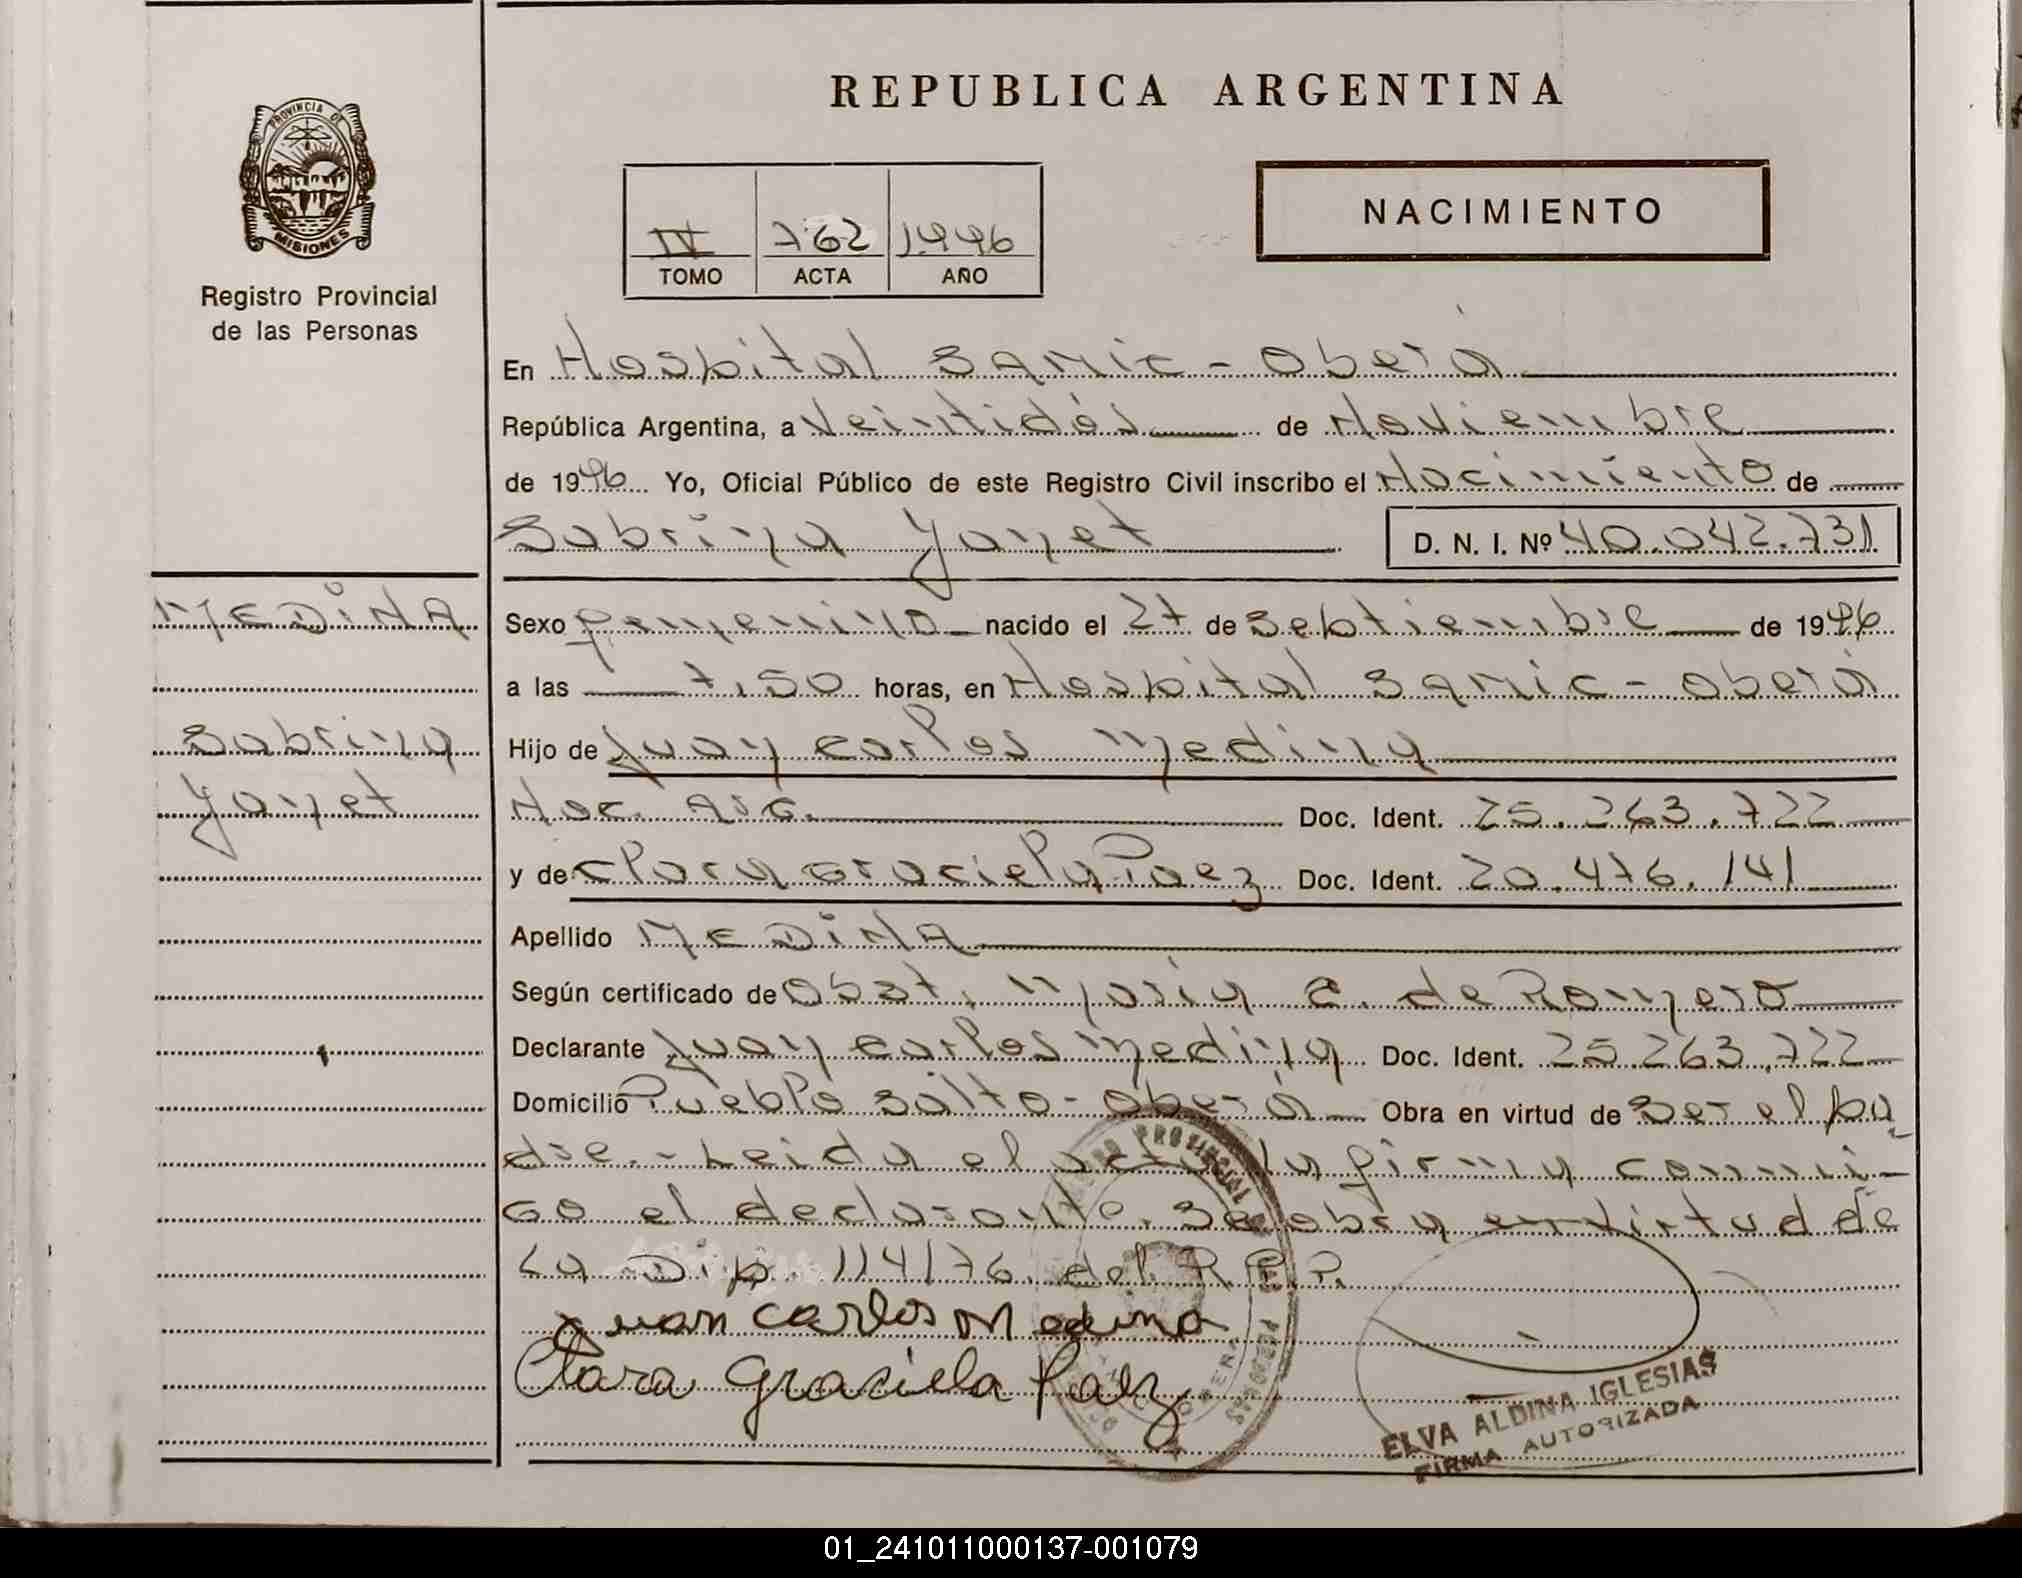 PROVINCIA DE
MISIONES
Registro Provincial
de las Personas
REPUBLICA ARGENTINA
IV 762 1996
TOMO ACTA AÑO
NACIMIENTO
En Hospital Samic - Oberá
República Argentina, a Veintidós de Noviembre
de 1996 Yo, Oficial Público de este Registro Civil inscribo el Nacimiento de
Sabrina Yanet D. N. I. Nº 40.042.731
MEDINA
Sabrina
Yanet
Sexo Femenino nacido el 27 de Septiembre de 1996
a las 7,50 horas, en Hospital Samic - Oberá
Hijo de Juan Carlos Medina
Nac. Arg. Doc. Ident. 25.263.722
y de Clara Graciela Paez Doc. Ident. 20.476.141
Apellido MEDINA
Según certificado de Obst. María E. de Romero
Declarante Juan Carlos Medina Doc. Ident. 25.263.722
Domicilio Pueblo Salto - Oberá Obra en virtud de Ser el pa
dre. - Leida el acta la firma conmi-
go el declarante. Se labra en virtud de
La Dip. 114/76. del R.P.P.
Juan Carlos Medina
Clara Graciela Paez
PROVINCIAL
ELVA ALDINA IGLESIAS
FIRMA AUTORIZADA
01_241011000137-001079